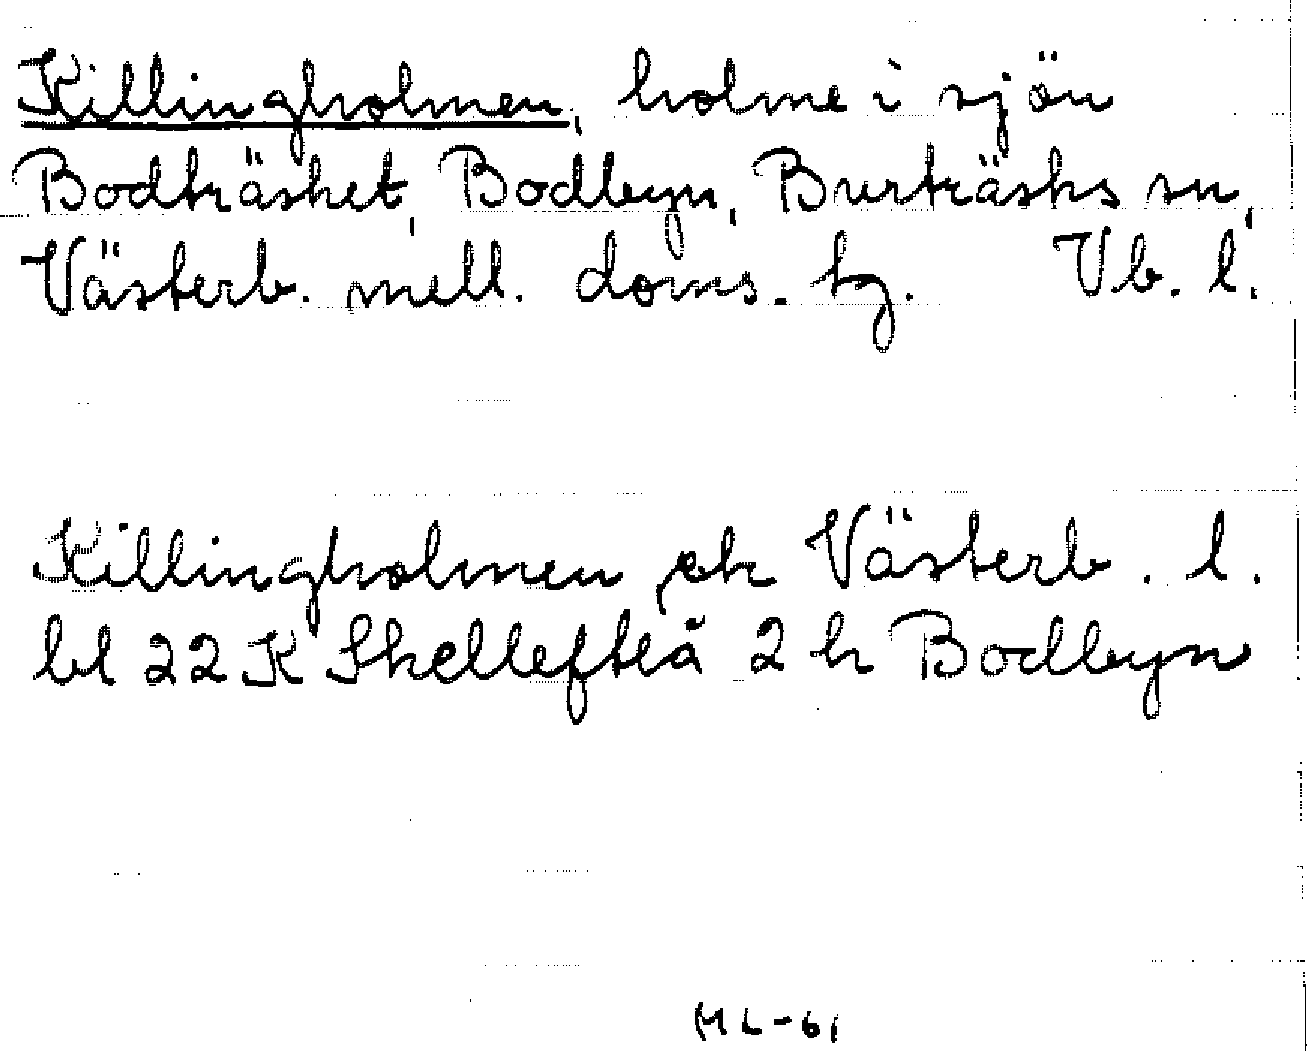 Killingholmen, holme i sjön
Bodträsket, Bodbyn, Burträsks sn,
Västerb. mell. doms. tg. Vb. l.
Killingholmen ek Västerb. l.
bl 22 K Skellefteå 2 h Bodbyn
ML-61